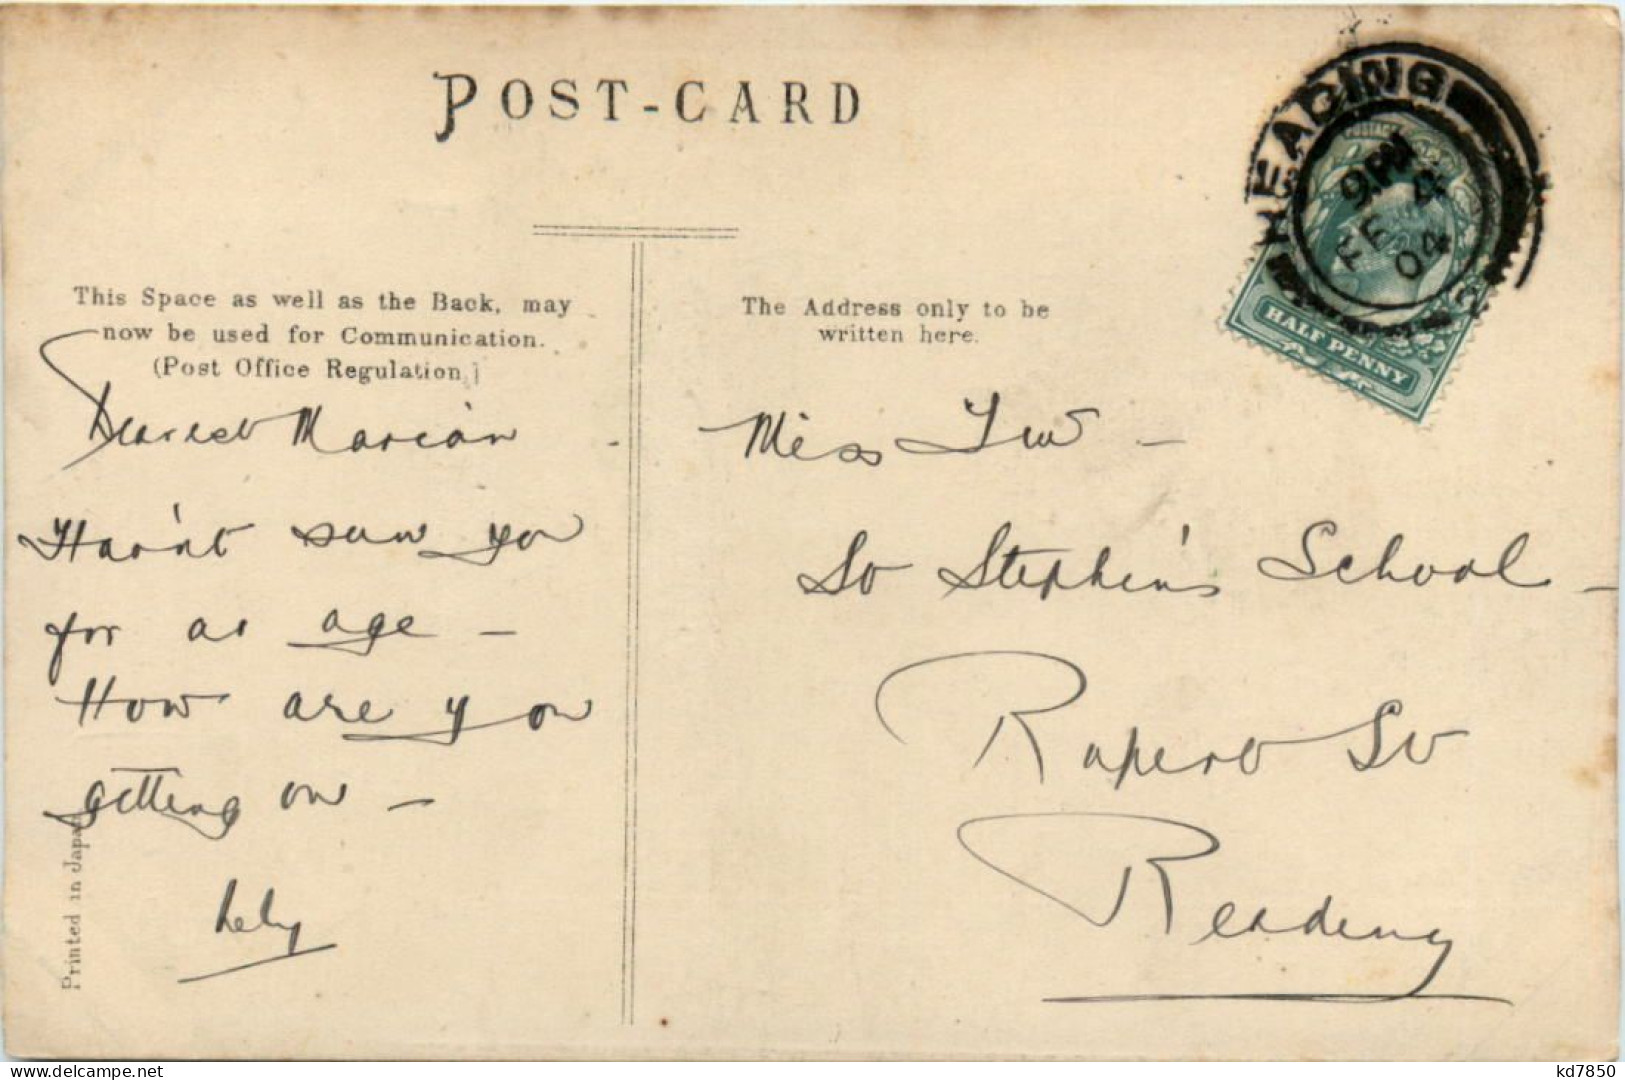 POST-CARD
READING
9 PM
FE 4
04
POSTAGE
HALFPENNY
This Space as well as the Back, may
now be used for Communication.
(Post Office Regulation.)
The Address only to be
written here.
Dearest Marian
Hav'nt seen you
for an age —
How are you
getting on —
Printed in Japan
Miss
St Stephen's School —
Rupert St
Reading
delcampe.net
kd7850